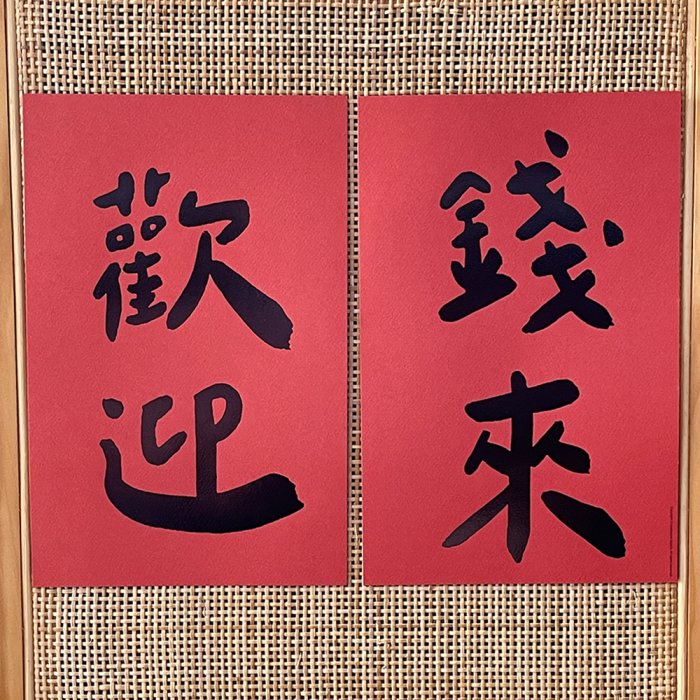 錢來
歡迎